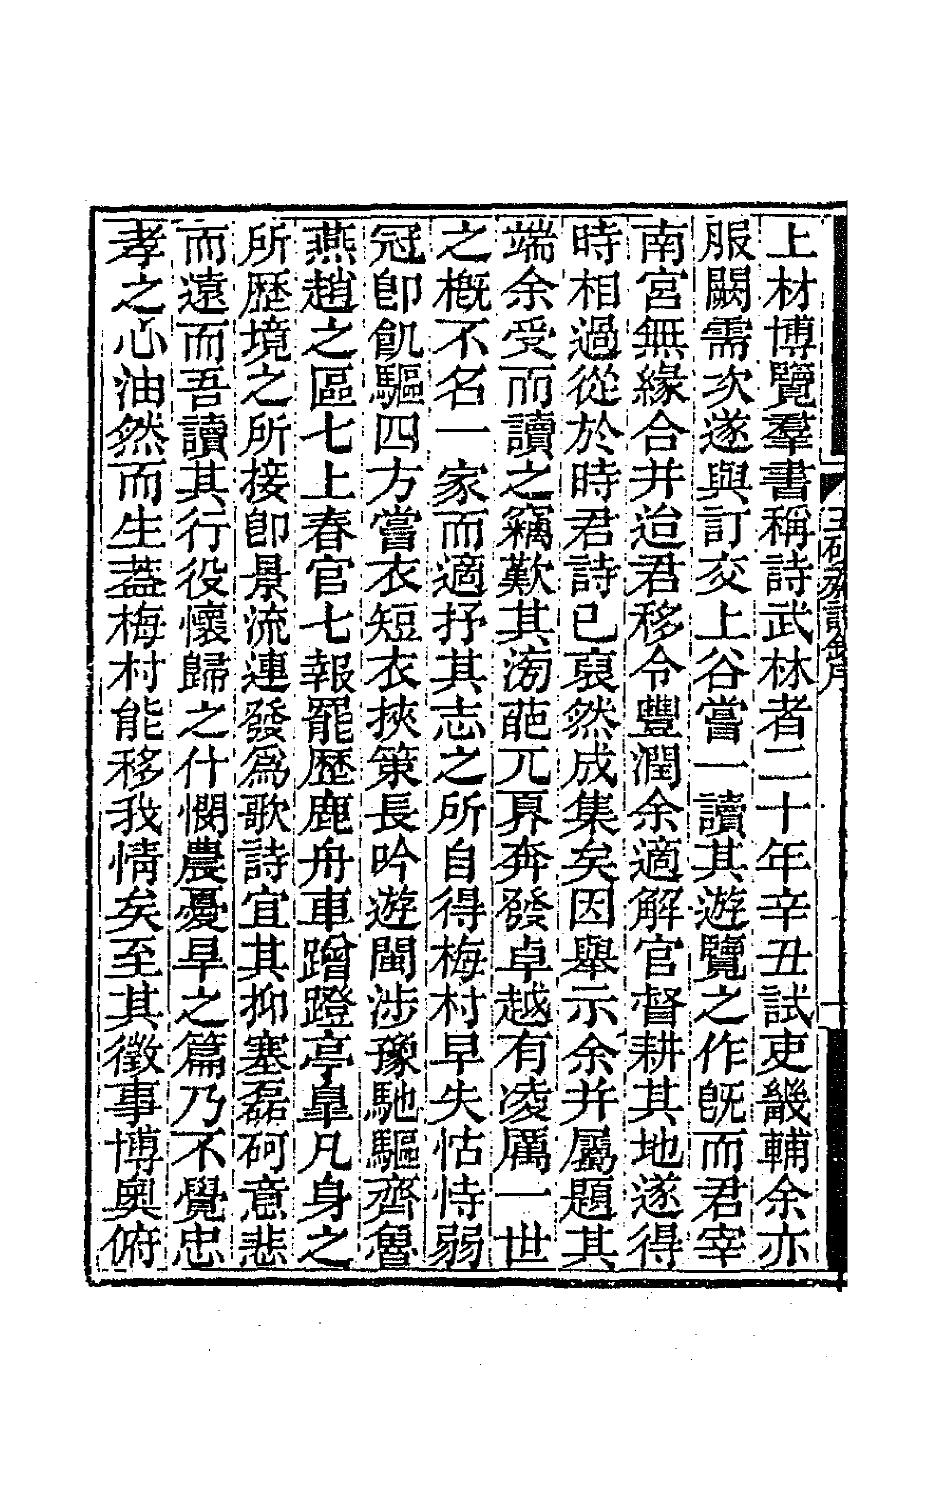 上材博覽羣書稱詩武林者二十年辛丑試吏畿輔余亦
服闕需次遂與訂交上谷嘗一讀其遊覽之作旣而君宰
南宮無緣合并迨君移令豐潤余適解官督耕其地遂得
時相過從於時君詩已裒然成集矣因舉示余并屬題其
端余受而讀之竊歎其淘葩兀奡奔發卓越有凌厲一世
之槪不名一家而適抒其志之所自得梅村早失怙恃弱
冠卽飢驅四方嘗衣短衣挾策長吟遊閩涉豫馳驅齊魯
燕趙之區七上春官七報罷歷鹿舟車蹭蹬亭臯凡身之
所歷境之所接卽景流連發爲歌詩宜其抑塞磊砢意悲
而遠而吾讀其行役懷歸之什憫農憂旱之篇乃不覺忠
孝之心油然而生蓋梅村能移我情矣至其徵事博奧俯